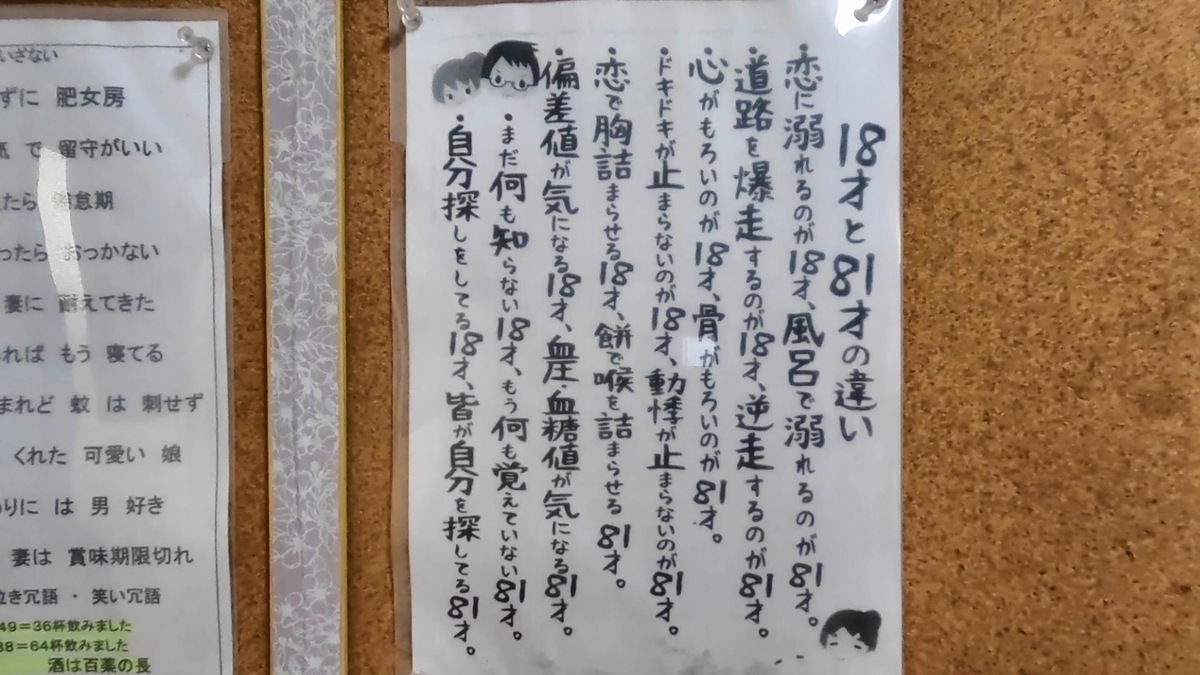 18才と81才の違い
・恋に溺れるのが18才、風呂で溺れるのが81才。
・道路を爆走するのが18才、逆走するのが81才。
・心がもろいのが18才、骨がもろいのが81才。
・ドキドキが止まらないのが18才、動悸が止まらないのが81才。
・恋で胸詰まらせる18才、餅で喉を詰まらせる81才。
・偏差値が気になる18才、血圧・血糖値が気になる81才。
・まだ何も知らない18才、もう何も覚えていない81才。
・自分探しをしてる18才、皆が自分を探してる81才。
いざない
ずに 肥女房
で 留守がいい
たら 怠期
ったら おっかない
妻に 耐えてきた
れば もう 寝てる
まれど 蚊 は 刺せず
くれた 可愛い 娘
りに は 男 好き
妻は 賞味期限切れ
泣き冗語・笑い冗語
49=36杯飲みました
88=64杯飲みました
酒は百薬の長